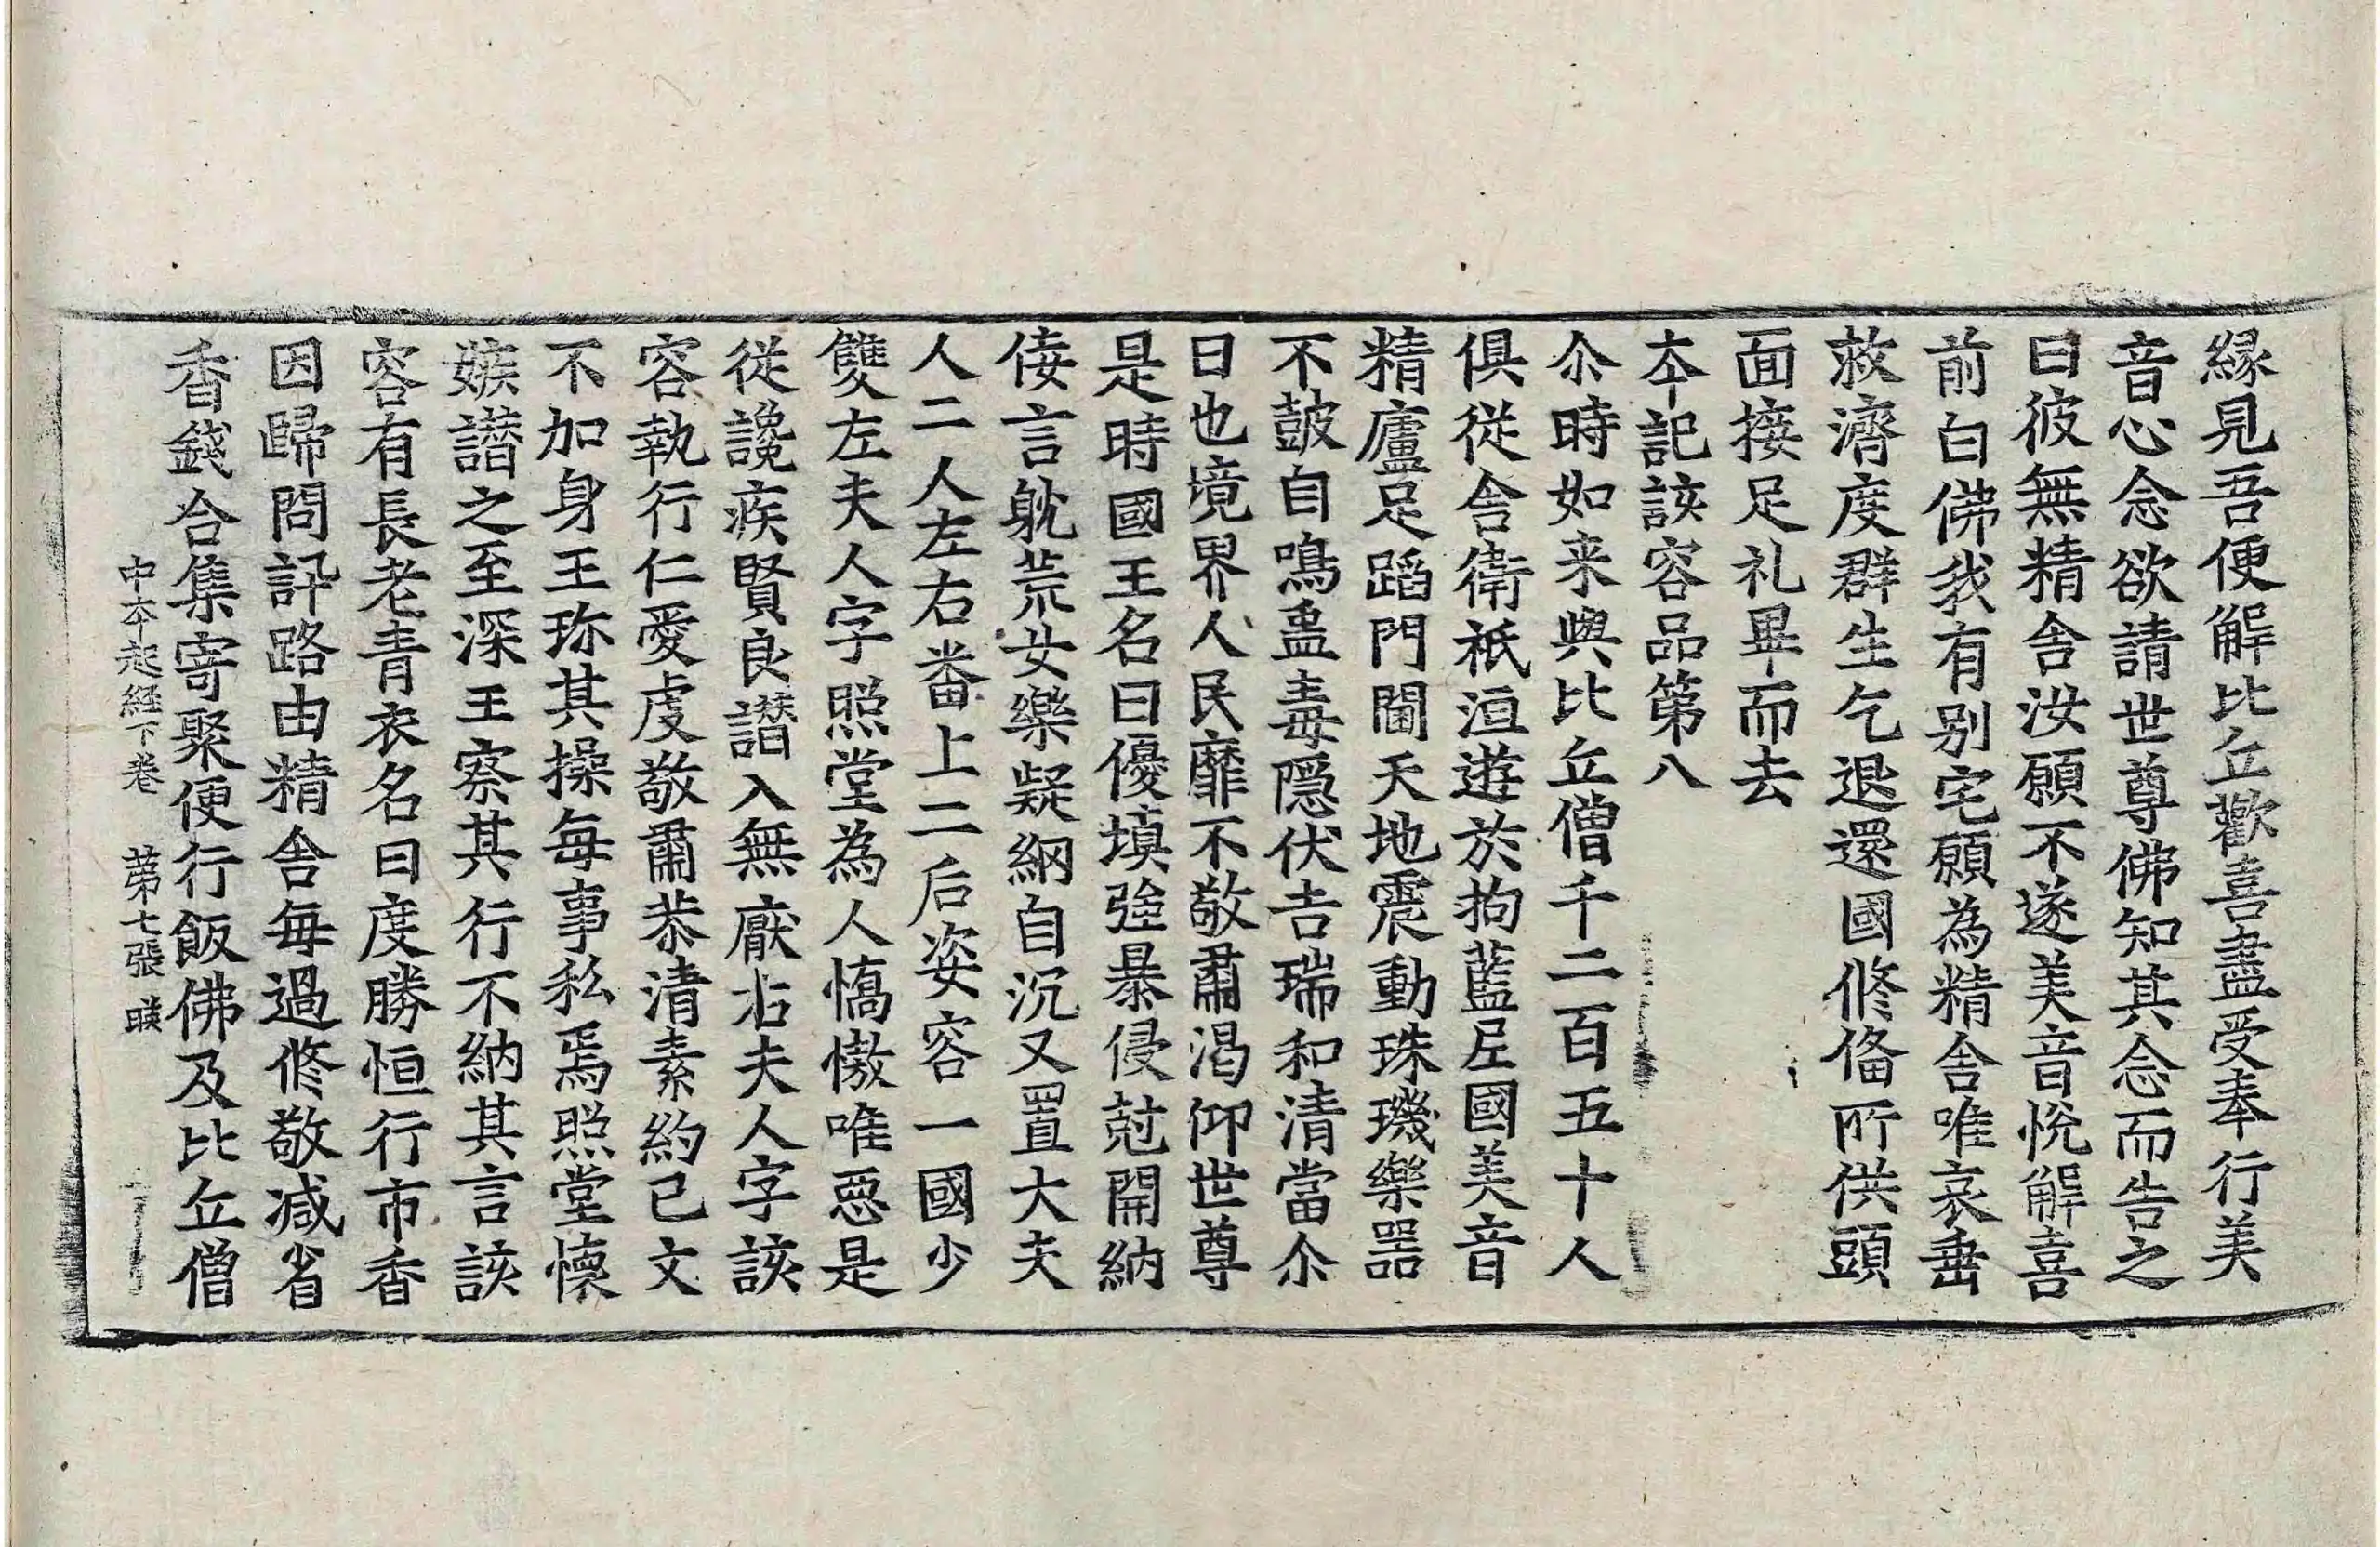 縁見吾便解比丘歡喜盡受奉行美
音心念欲請世尊佛知其念而告之
曰彼無精舍汝願不遂美音悅解喜
前白佛我有別宅願為精舍唯哀垂
救濟度群生乞退還國修俻所供頭
面接足礼畢而去
夲記該容品第八
尒時如来與比丘僧千二百五十人
俱從舍衛祇洹遊於拘藍尼國美音
精廬足蹈門閫天地震動珠璣樂器
不皷自鳴蠱毒隱伏吉瑞和清當尒
日也境界人民靡不敬肅渴仰世尊
是時國王名曰優填強暴侵尅開納
倿言躭荒女樂疑網自沉又置大夫
人二人左右番上二后姿容一國少
雙左夫人字照堂為人憍慠唯惡是
從讒疾賢良譖入無猒右夫人字該
容執行仁愛虔敬肅恭清素約己文
不加身王珎其操每事私焉照堂懷
嫉譖之至深王察其行不納其言該
容有長老青衣名曰度勝恒行市香
因歸問訊路由精舍每過修敬减省
香錢合集寄聚便行飯佛及比丘僧
中夲起經下卷 第七張